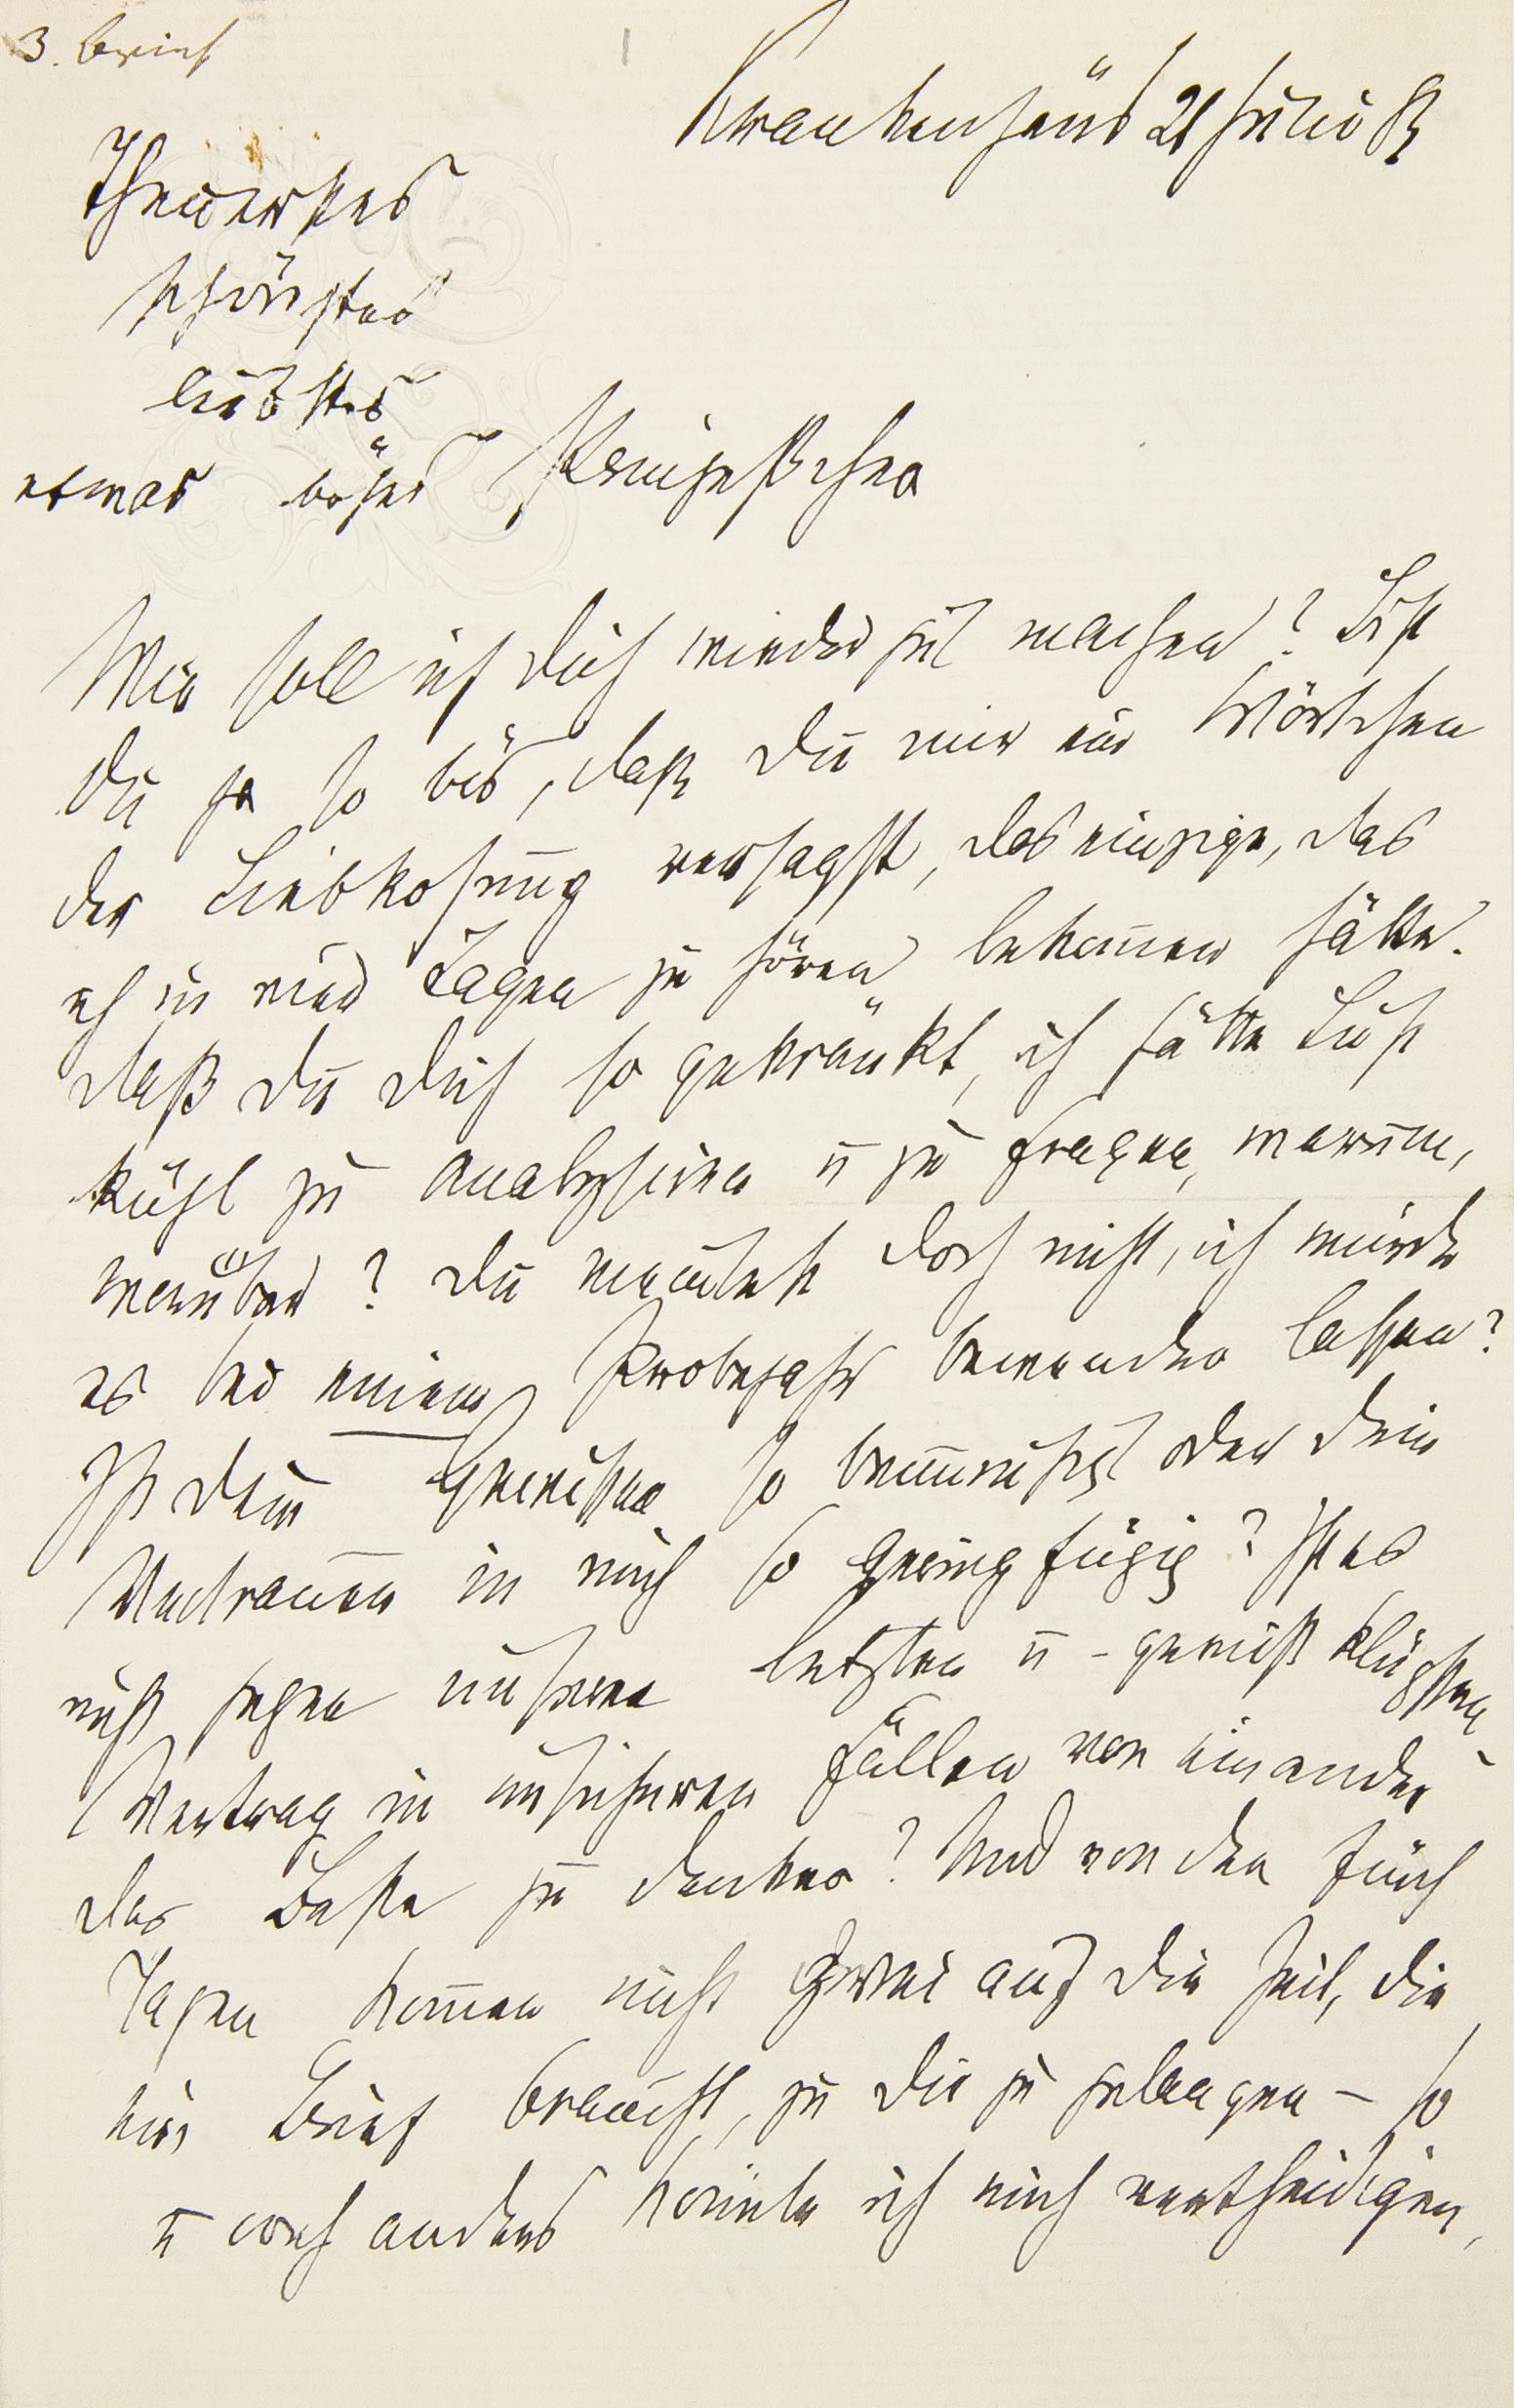 3. Brief
1
Krankenhaus 21 Juli 83
Theuerstes
schönstes
liebstes
etwas böses Prinzeßchen
Wie soll ich Dich wieder gut machen? Bist
Du ja so bös, daß Du mir ein Wörtchen
der Liebkosung versagst, das einzige, das
ich in vier Tagen zu hören bekom̅en hätte.
Daß Du Dich so gekränkt, ich hätte Lust
kühl zu analysiren u zu fragen, warum,
worüber? Du meintest doch nicht, ich würde
es bei einem Probejahr bewenden lassen?
Ist Dein Gewissen so beunruhigt oder Dein
Vertrauen in mich so geringfügig? Ist es
nicht gegen unseren letzten u – gewiß klügsten
Vertrag in unsicheren Fällen von einander
das Beste zu denken? Und von den fünf
Tagen kom̅en nicht zwei auf die Zeit, die
ein Brief braucht, zu Dir zu gelangen – so
u noch anders könnte ich mich vertheidigen,